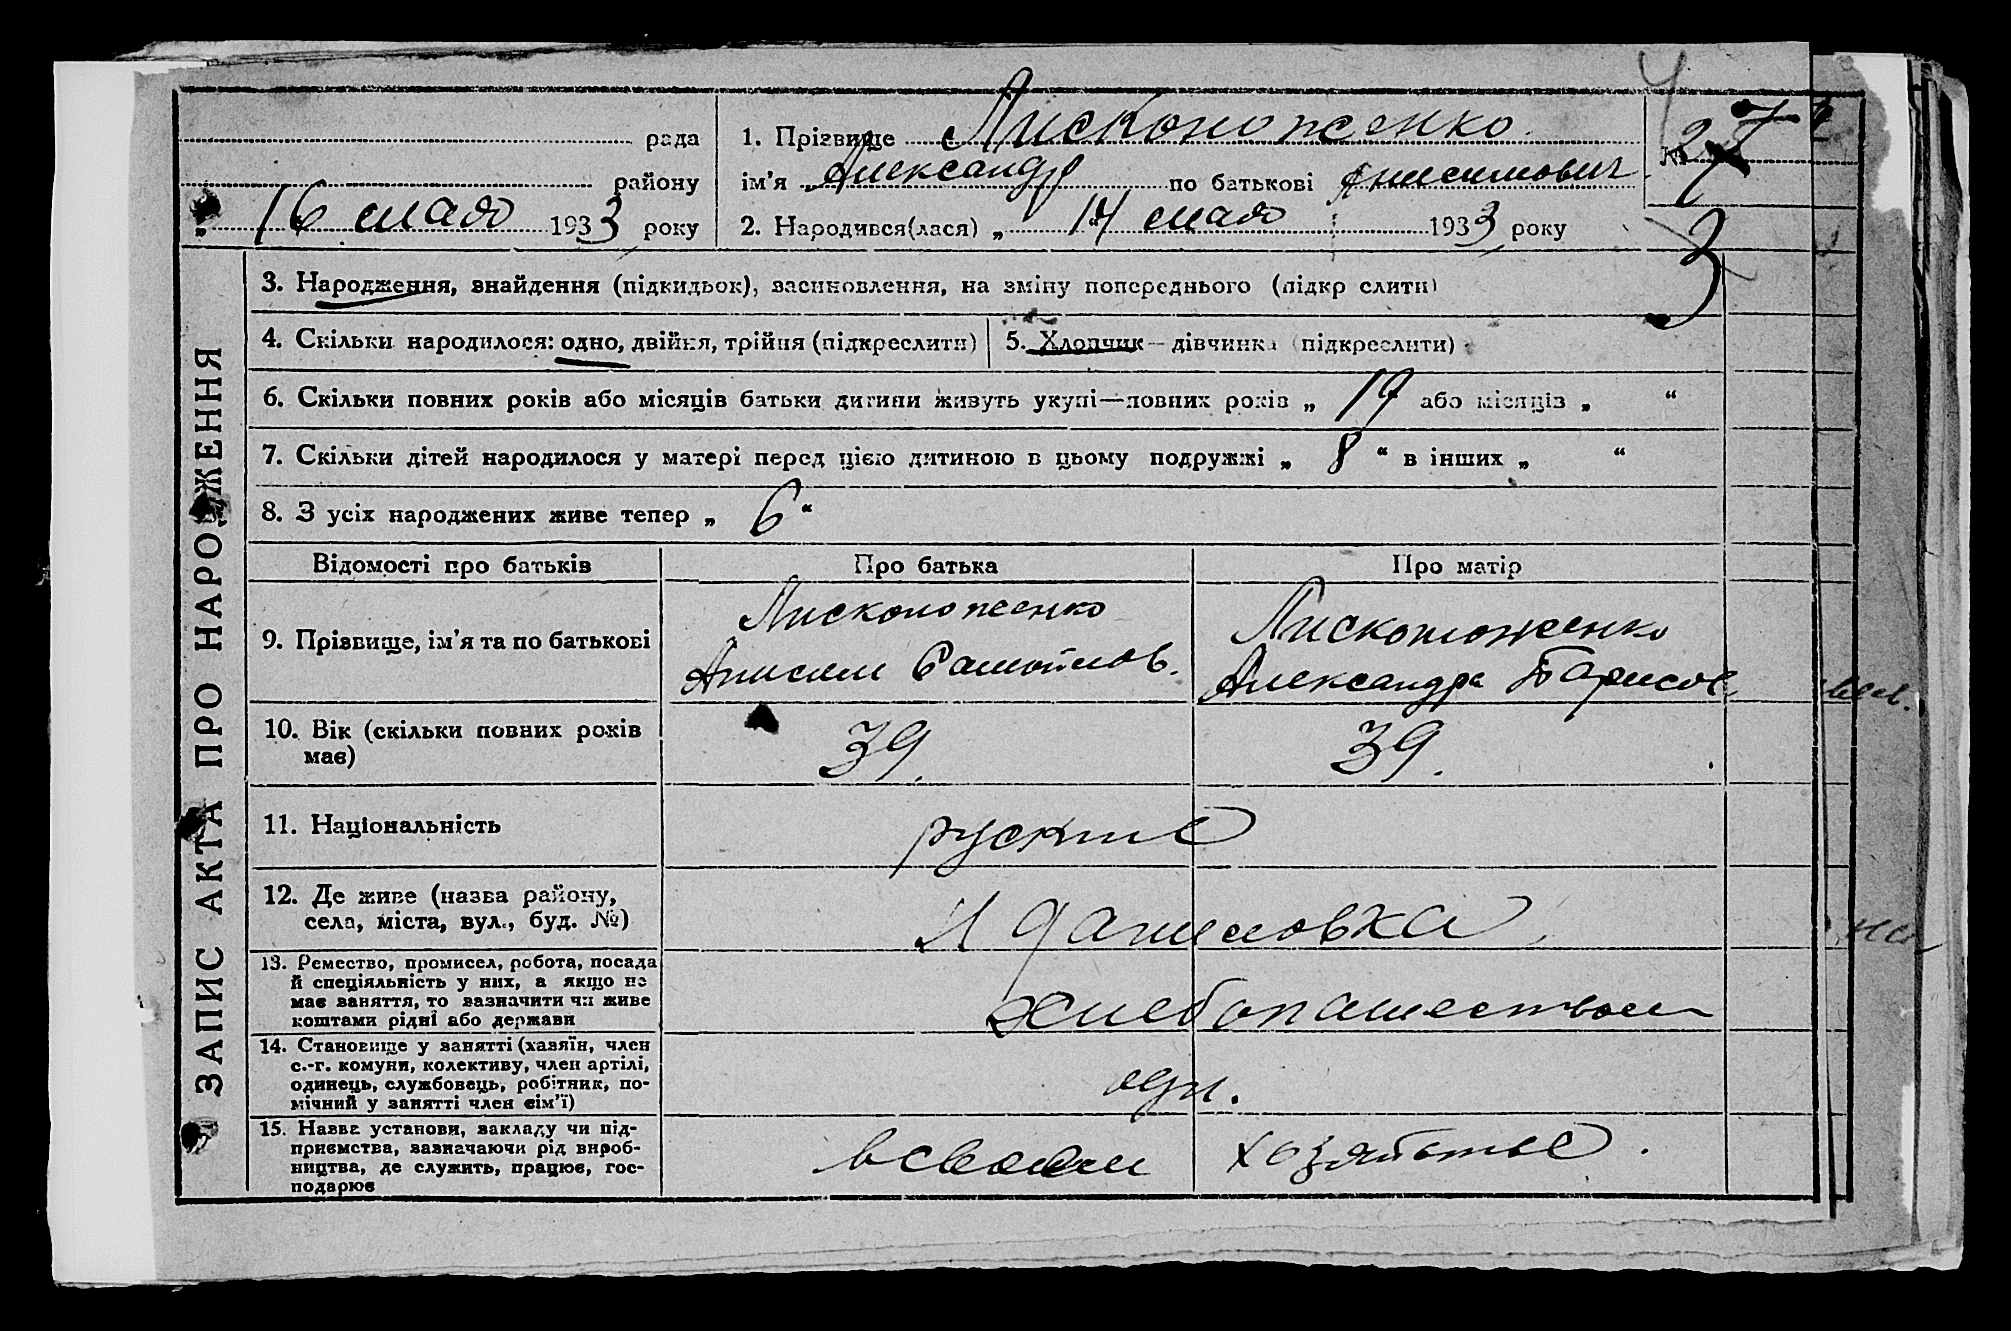 рада
району
„ 16 мая 1933 року
1. Прізвище Лисконоженко
ім’я Александр по батькові Анисимович
2. Народився(лася) „ 14 мая 1933 року
№ 27
3
ЗАПИС АКТА ПРО НАРОДЖЕННЯ
3. Народження, знайдення (підкидьок), засиновлення, на зміну попереднього (підкр слити)
4. Скільки народилося: одно, двійня, трійня (підкреслити)
5. Хлопчик — дівчинка (підкреслити)
6. Скільки повних років або місяців батьки дитини живуть укупі—повних років „ 19 або місяців „ “
7. Скільки дітей народилося у матері перед цією дитиною в цьому подружжі „ 8 “ в інших „ “
8. З усіх народжених живе тепер „ 6 “
Відомості про батьків
Про батька
Про матір
9. Прізвище, ім’я та по батькові
Лисконоженко
Анисим Самойлов.
Лисконоженко
Александра Барисов
10. Вік (скільки повних років
має)
39.
39.
11. Національність
руские
12. Де живе (назва району,
села, міста, вул., буд. №)
даниловка
13. Ремество, промисел, робота, посада
й спеціяльність у них, а якщо не
має заняття, то зазначити чи живе
коштами рідні або держави
хлебопашеством
14. Становище у занятті (хазяїн, член
с.-г. комуни, колективу, член артілі,
одинець, службовець, робітник, по-
мічний у занятті член сім’ї)
одн.
15. Назва установи, закладу чи під-
приємства, зазначаючи рід вироб-
ництва, де служить, працює, гос-
подарює
всвоем хозяйстве.